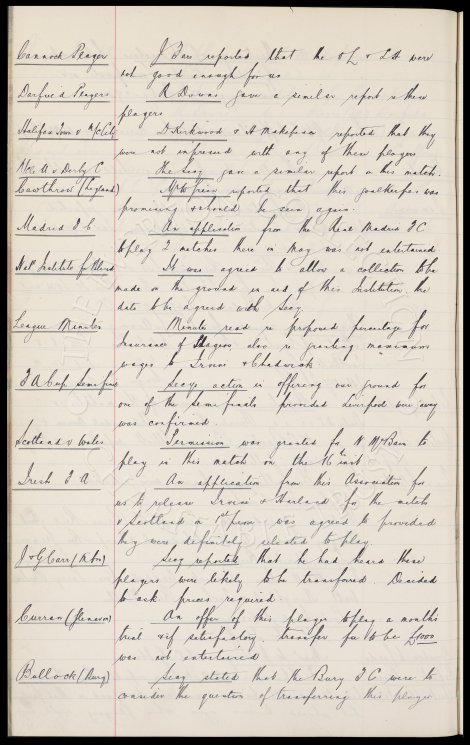 Cannock Player
J Bain reported that the OL & LH were
not good enough for us
Players
R Downs gave a similar report on these
players
Halifax Town v M/c City
D Kirkwood & A Makepeace reported that they
were not impressed with any of these players
M/c U v Derby C
The Secy gave a similar report on this match.
Cawthrow (England)
reported that this goalkeeper was
promising & should be seen again.
Madrid F C
An application from the Real Madrid F C
to play 2 matches there in May was not entertained
Nat Institute for Blind
It was agreed to allow a collection to be
made on the ground in aid of this Institution. the
date to be agreed with Secy
League Minutes
Minutes read re proposed percentage for
Insurance of Players also re granting maximum
wages to Irvine & Chadwick
F A Cup Semi finals
Secys action in offering our ground for
one of the Semi finals provided Liverpool were away
was confirmed.
Scotland v Wales
Permission was granted for N McBain to
play in this match on the 16th inst
Irish F A
An application from this Association for
us to release Irvine & Harland for the match
v Scotland on 1st prox was agreed to provided
they were definitely selected to play.
J & G Carr
Secy reported that he had heard these
players were likely to be transferred. Decided
to ask prices required.
Curran
An offer of this player to play a months
trial & if satisfactory transfer fee to be £1000
was not entertained
Bullock (Bury)
Secy stated that the Bury F C were to
consider the question of transferring this player